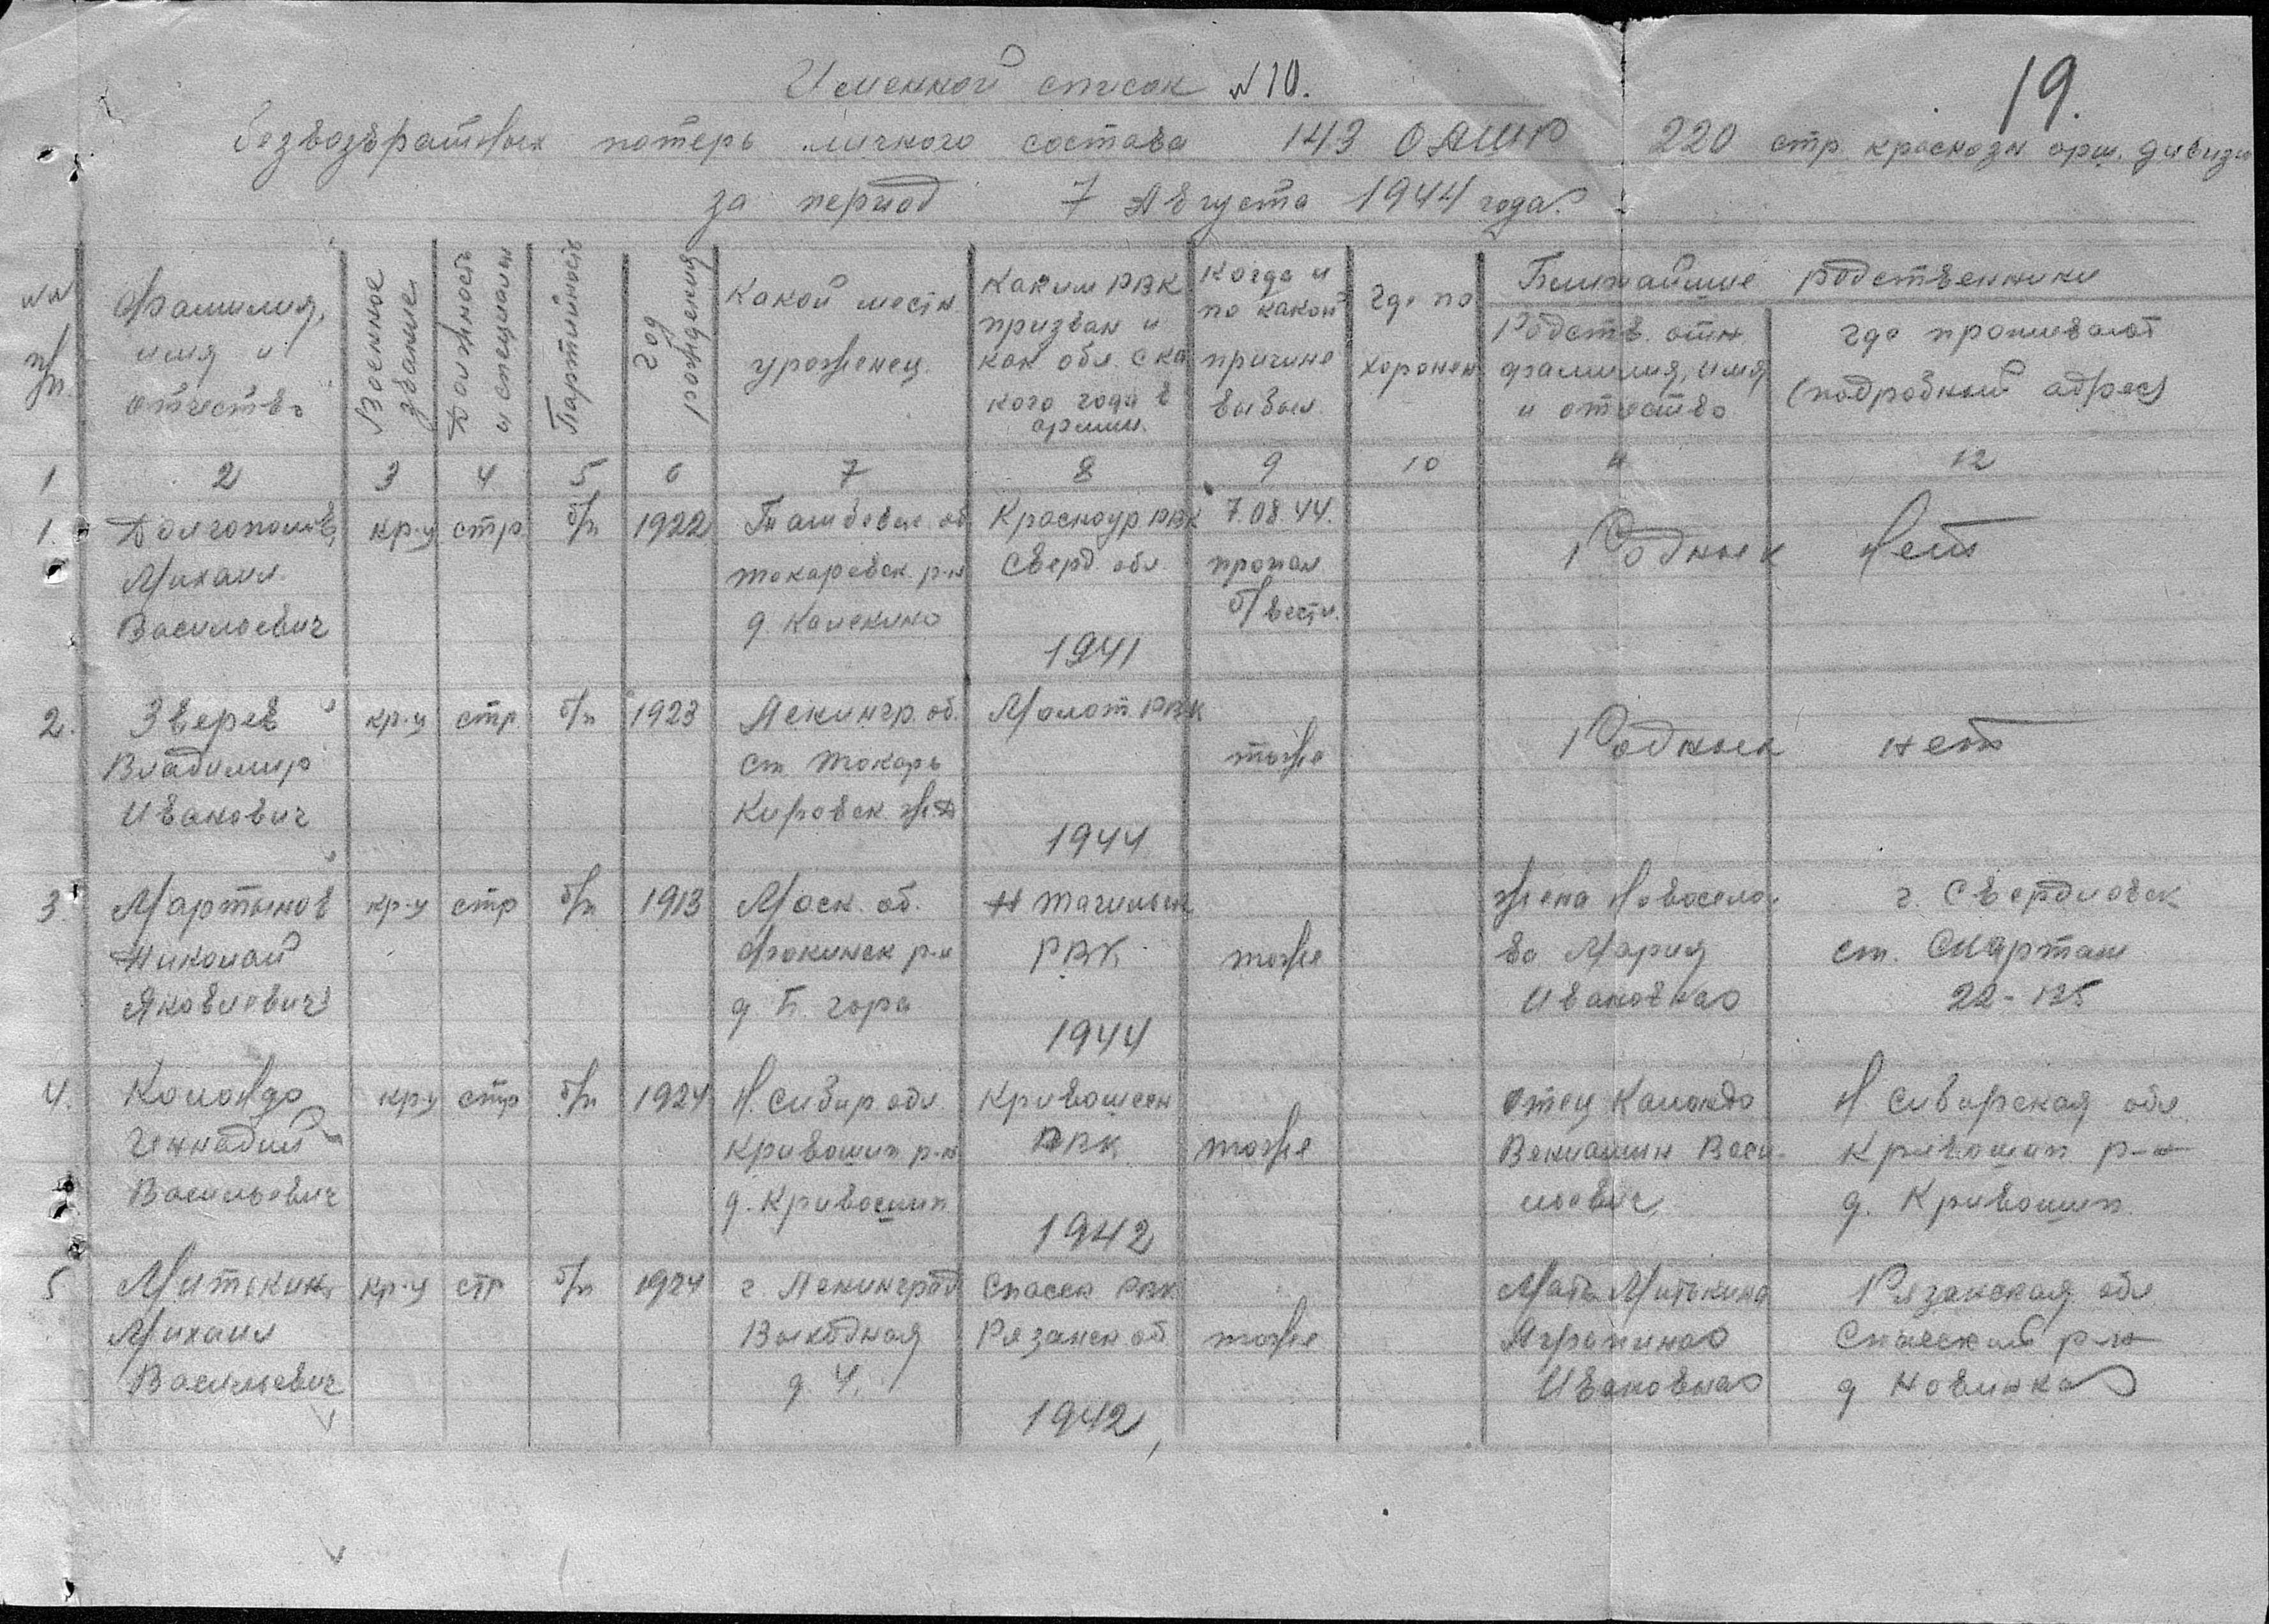 19.
Именной список №10.
безвозвратных потерь личного состава 143 ОАШР 220 стр. краснозн орш. дивизи
за период 7 Августа 1944 года.
№№ п/п
Фамилия, имя и отчество
Военное звание
Должность и специальн
Партийность
Год рождения
Какой местн. уроженец.
Каким РВК призван и как обл. с ка кого года в армии.
Когда и по какой причине выбыл.
Где по хоронен
Ближайшие родственники
Родств. отн. фамилия, имя и отчество
где проживают (подробный адрес)
1 2 3 4 5 6 7 8 9 10 11 12
1. Долгополов кр-ц стр б/п 1922 Тамбовск. об Красноур РВК 7.08.44. Родных Нет
Михаил токаревск. р-н Сверд обл. пропал
Васильевич д б/вести.
1941
2. Зверев кр-ц стр б/п 1923 Ленингр. об. Молот РВК Родных нет
Владимир ст Токарь тоже
Иванович Кировск ж.д
1944
3. Мартынов кр-ц стр б/п 1913 Моск. об. Н Тагильск жена Новосело- г. Свердловск
Николай р-н РВК тоже ва Мария ст.
Яковлевич д Б. гора Ивановна 22-125
1944
4. Коландо кр-ц стр б/п 1924 Н. Сибир обл Кривошеен Отец Коландо Н Сибирская обл.
Геннадий Кривошин р-н РВК тоже Вениамин Васи- Кривошин р-н
Васильевич д. Кривошин льевич д. Кривошин.
1942
5 Митькин кр-ц стр б/п 1924 г. Ленинград Спасск РВК Мать Митькина Рязанская обл
Михаил Выходная Рязанск об тоже Агрипина Спасский р-н
Васильевич д. 4. Ивановна д Новинка
1942